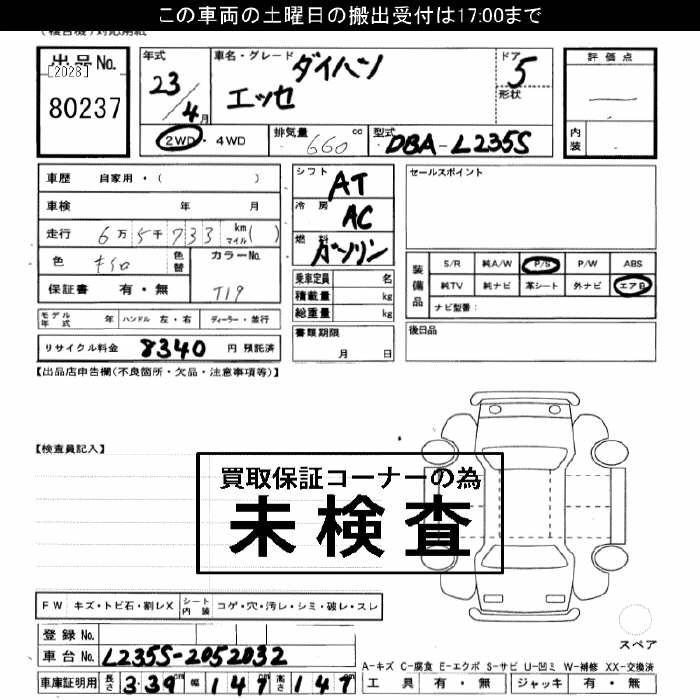 この車両の土曜日の搬出受付は17:00まで
出品No.
[2028]
80237
年式
23/4月
車名・グレード
ダイハツ
エッセ
ドア
5
形状
評価点
内装
2WD・4WD
排気量 660 cc
型式 DBA-L235S
車歴 自家用・( )
車検 年 月
走行 6万5千733 km マイル( )
色
色替
カラーNo.
T19
保証書 有・無
シフト AT
冷房 AC
燃料 ガソリン
乗車定員 名
積載量 kg
総重量 kg
書類期限
月 日
セールスポイント
装備品
S/R 純A/W P/S P/W ABS
純TV 純ナビ 革シート 外ナビ エアB
ナビ型番:
後日品
モデル年式 年 ハンドル 左・右 ディーラー・並行
リサイクル料金 8340 円 預託済
【出品店申告欄(不良箇所・欠品・注意事項等)】
【検査員記入】
買取保証コーナーの為
未検査
FW キズ・トビ石・割レX シート内装 コゲ・穴・汚レ・シミ・破レ・スレ
登録No.
車台No. L235S-2052032
車庫証明用 長さ 3.39 cm 幅 147 cm 高さ 147
スペア
A-キズ C-腐食 E-エクボ S-サビ U-凹ミ W-補修 XX-交換済
工具 有・無 ジャッキ 有・無